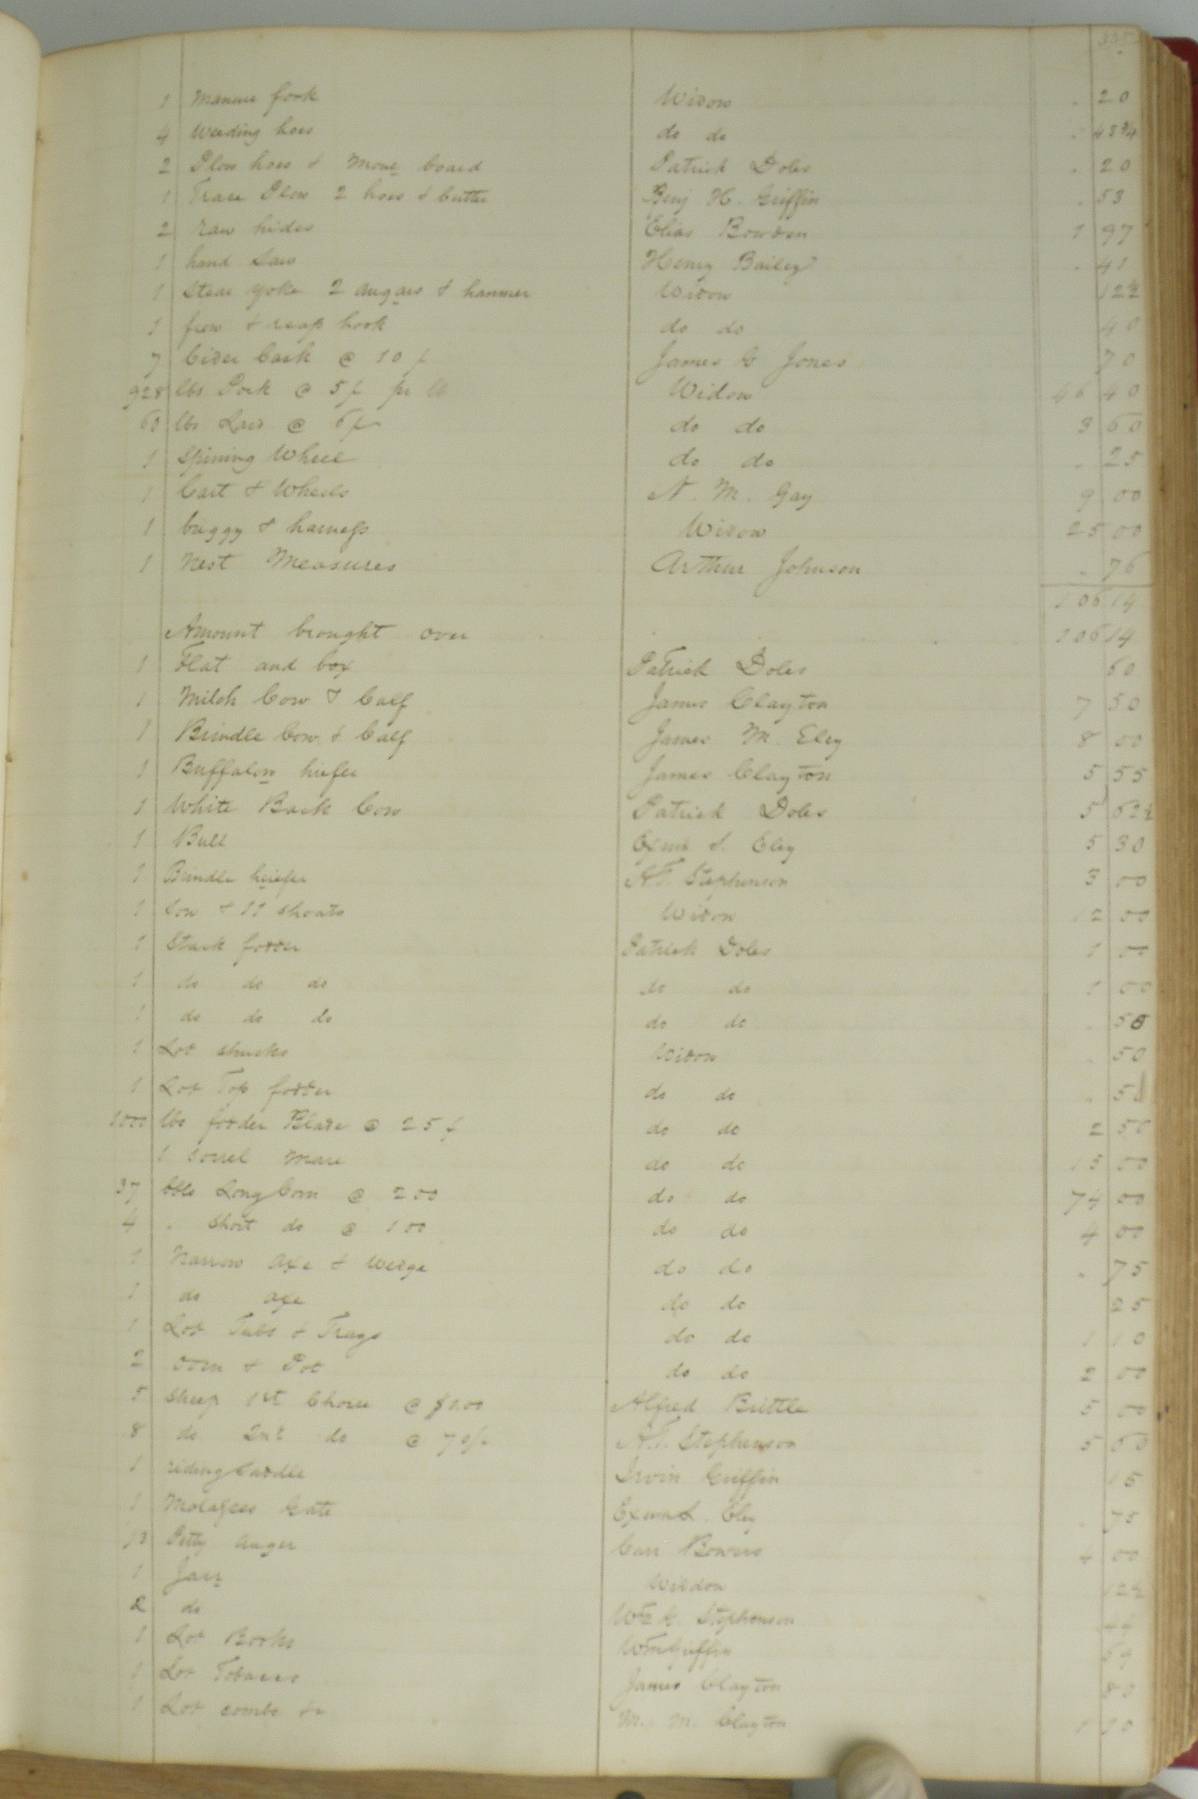 1 Manure fork Widow . 20
4 Weeding hoes do do . 43 3/4
2 Plow hoes & Moue board Patrick Doles . 20
1 Trace Plow 2 hoes & Cutter Benj H. Griffin . 53
2 raw hides Elias Bowden 1 97
1 hand Saw Henry Bailey . 41
1 Stear yoke 2 augars & hammer Widow 12½
1 frow & reap hook do do 40
7 Cider Cask @ 10 ȼ James G Jones 70
928 lbs Pork @ 5ȼ pr lb Widow 46 40
60 lbs Lard @ 6ȼ do do 3 60
1 Spining Wheel do do . 25
1 Cart & Wheels N. M. Gay 9 00
1 buggy & harness Widow 25 00
1 nest Measures Arthur Johnson . 76
106 14
Amount brought over 106 14
1 Flat and box Patrick Doles 60
1 Milch Cow & Calf James Clayton 7 50
1 Brindle Cow & Calf James M. Eley 8 00
1 Buffalow hiefer James Clayton 5 55
1 White Back Cow Patrick Doles 5 62½
1 Bull Exum S. Eley 5 30
1 Brindle hiefer Stephenson 3 00
1 Sow & 11 Shoats Widow 12 00
1 Stack fodder Patrick Doles 1 00
1 do do do do do 1 00
1 do do do do do . 50
1 Lot shucks Widow . 50
1 Lot Top fodder do do . 50
1000 lbs fodder Blade @ 25ȼ do do 2 50
1 Sorrel Mare do do 15 00
37 bbls Long Corn @ 200 do do 74 00
4 . Short do @ 100 do do 4 00
1 Narrow Axe & Wedge do do . 75
1 do axe do do 25
1 Lot Tubs & Trays do do 1 10
2 oven & Pot do do 2 00
5 Sheep 1st Choice @ $1.00 Alfred Brittle 5 00
8 do 2nd do @ 70ȼ Stephenson 5 60
1 riding Saddle Irvin Griffin 15
1 Molasses Gate Exum S. Eley . 75
Petty Auger Carr Bowers 00
1 Jarr Widow 12½
2 do Wm G. Stephenson
1 Lot Books Wm Griffin
1 Lot Tobacco James Clayton 80
1 Lot combs &c M. M. Clayton 1 10